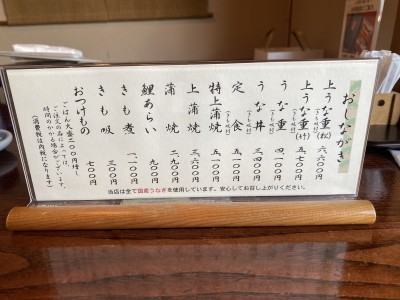 おしながき
上うな重(松)(きも吸付) 六、六〇〇円
上うな重(竹)(きも吸付) 五、七〇〇円
うな重(きも吸付) 五、一〇〇円
うな丼(きも吸付) 三、四〇〇円
定食(きも吸付) 五、一〇〇円
特上蒲焼 五、一〇〇円
上蒲焼 三、六〇〇円
蒲焼 二、九〇〇円
鯉あらい 九〇〇円
きも煮 一、一〇〇円
きも吸 三〇〇円
おつけもの 七〇〇円
ごはん大盛二〇〇円増し
ご注文の品によっては、
時間のかかる場合がございます。
(消費税は内税になります)
当店は全て国産うなぎを使用しています。安心してお召し上がりください。